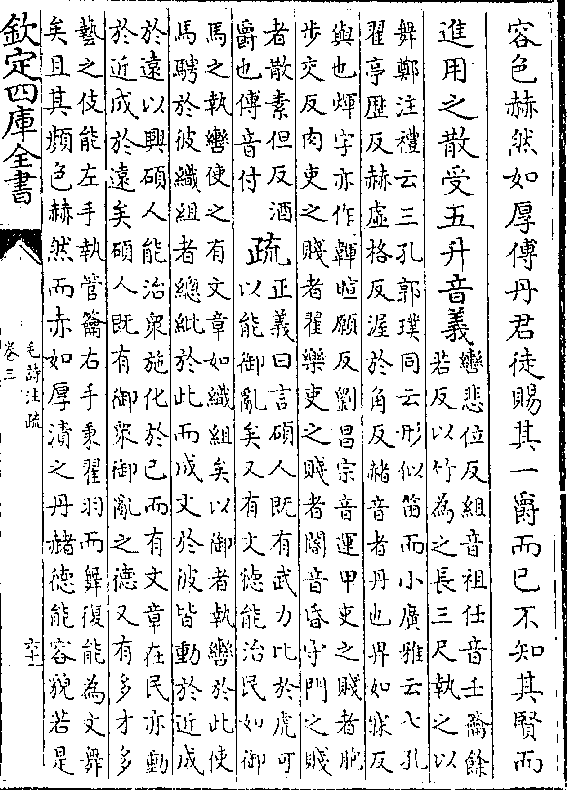 容色赫然如厚傅丹君徒賜其一爵而已不知其賢而
進用之散受五升音義
轡悲位反組音祖任音壬籥餘
若反以竹為之長三尺執之以
舞鄭注禮云三孔郭璞同云形似笛而小廣雅云七孔
翟亭歷反赫虛格反渥於角反赭音者丹也畀如寐反
與也煇字亦作韗暄願反劉昌宗音運甲吏之賤者胞
步交反肉吏之賤者翟樂吏之賤者閽音昏守門之賤
者散素但反酒
爵也傅音付
疏
正義曰言碩人既有武力比於虎可
以能御亂矣又有文德能治民如御
馬之執轡使之有文章如織組矣以御者執轡於此使
馬騁於彼織組者總紕於此而成文於彼皆動於近成
於遠以興碩人能治衆施化於已而有文章在民亦動
於近成於遠矣碩人既有御衆御亂之德又有多才多
藝之伎能左手執管籥右手秉翟羽而舞復能為文舞
矣且其顏色赫然而赤如厚漬之丹赭德能容貌若是
欽定四庫全書
毛詩注疏
卷三